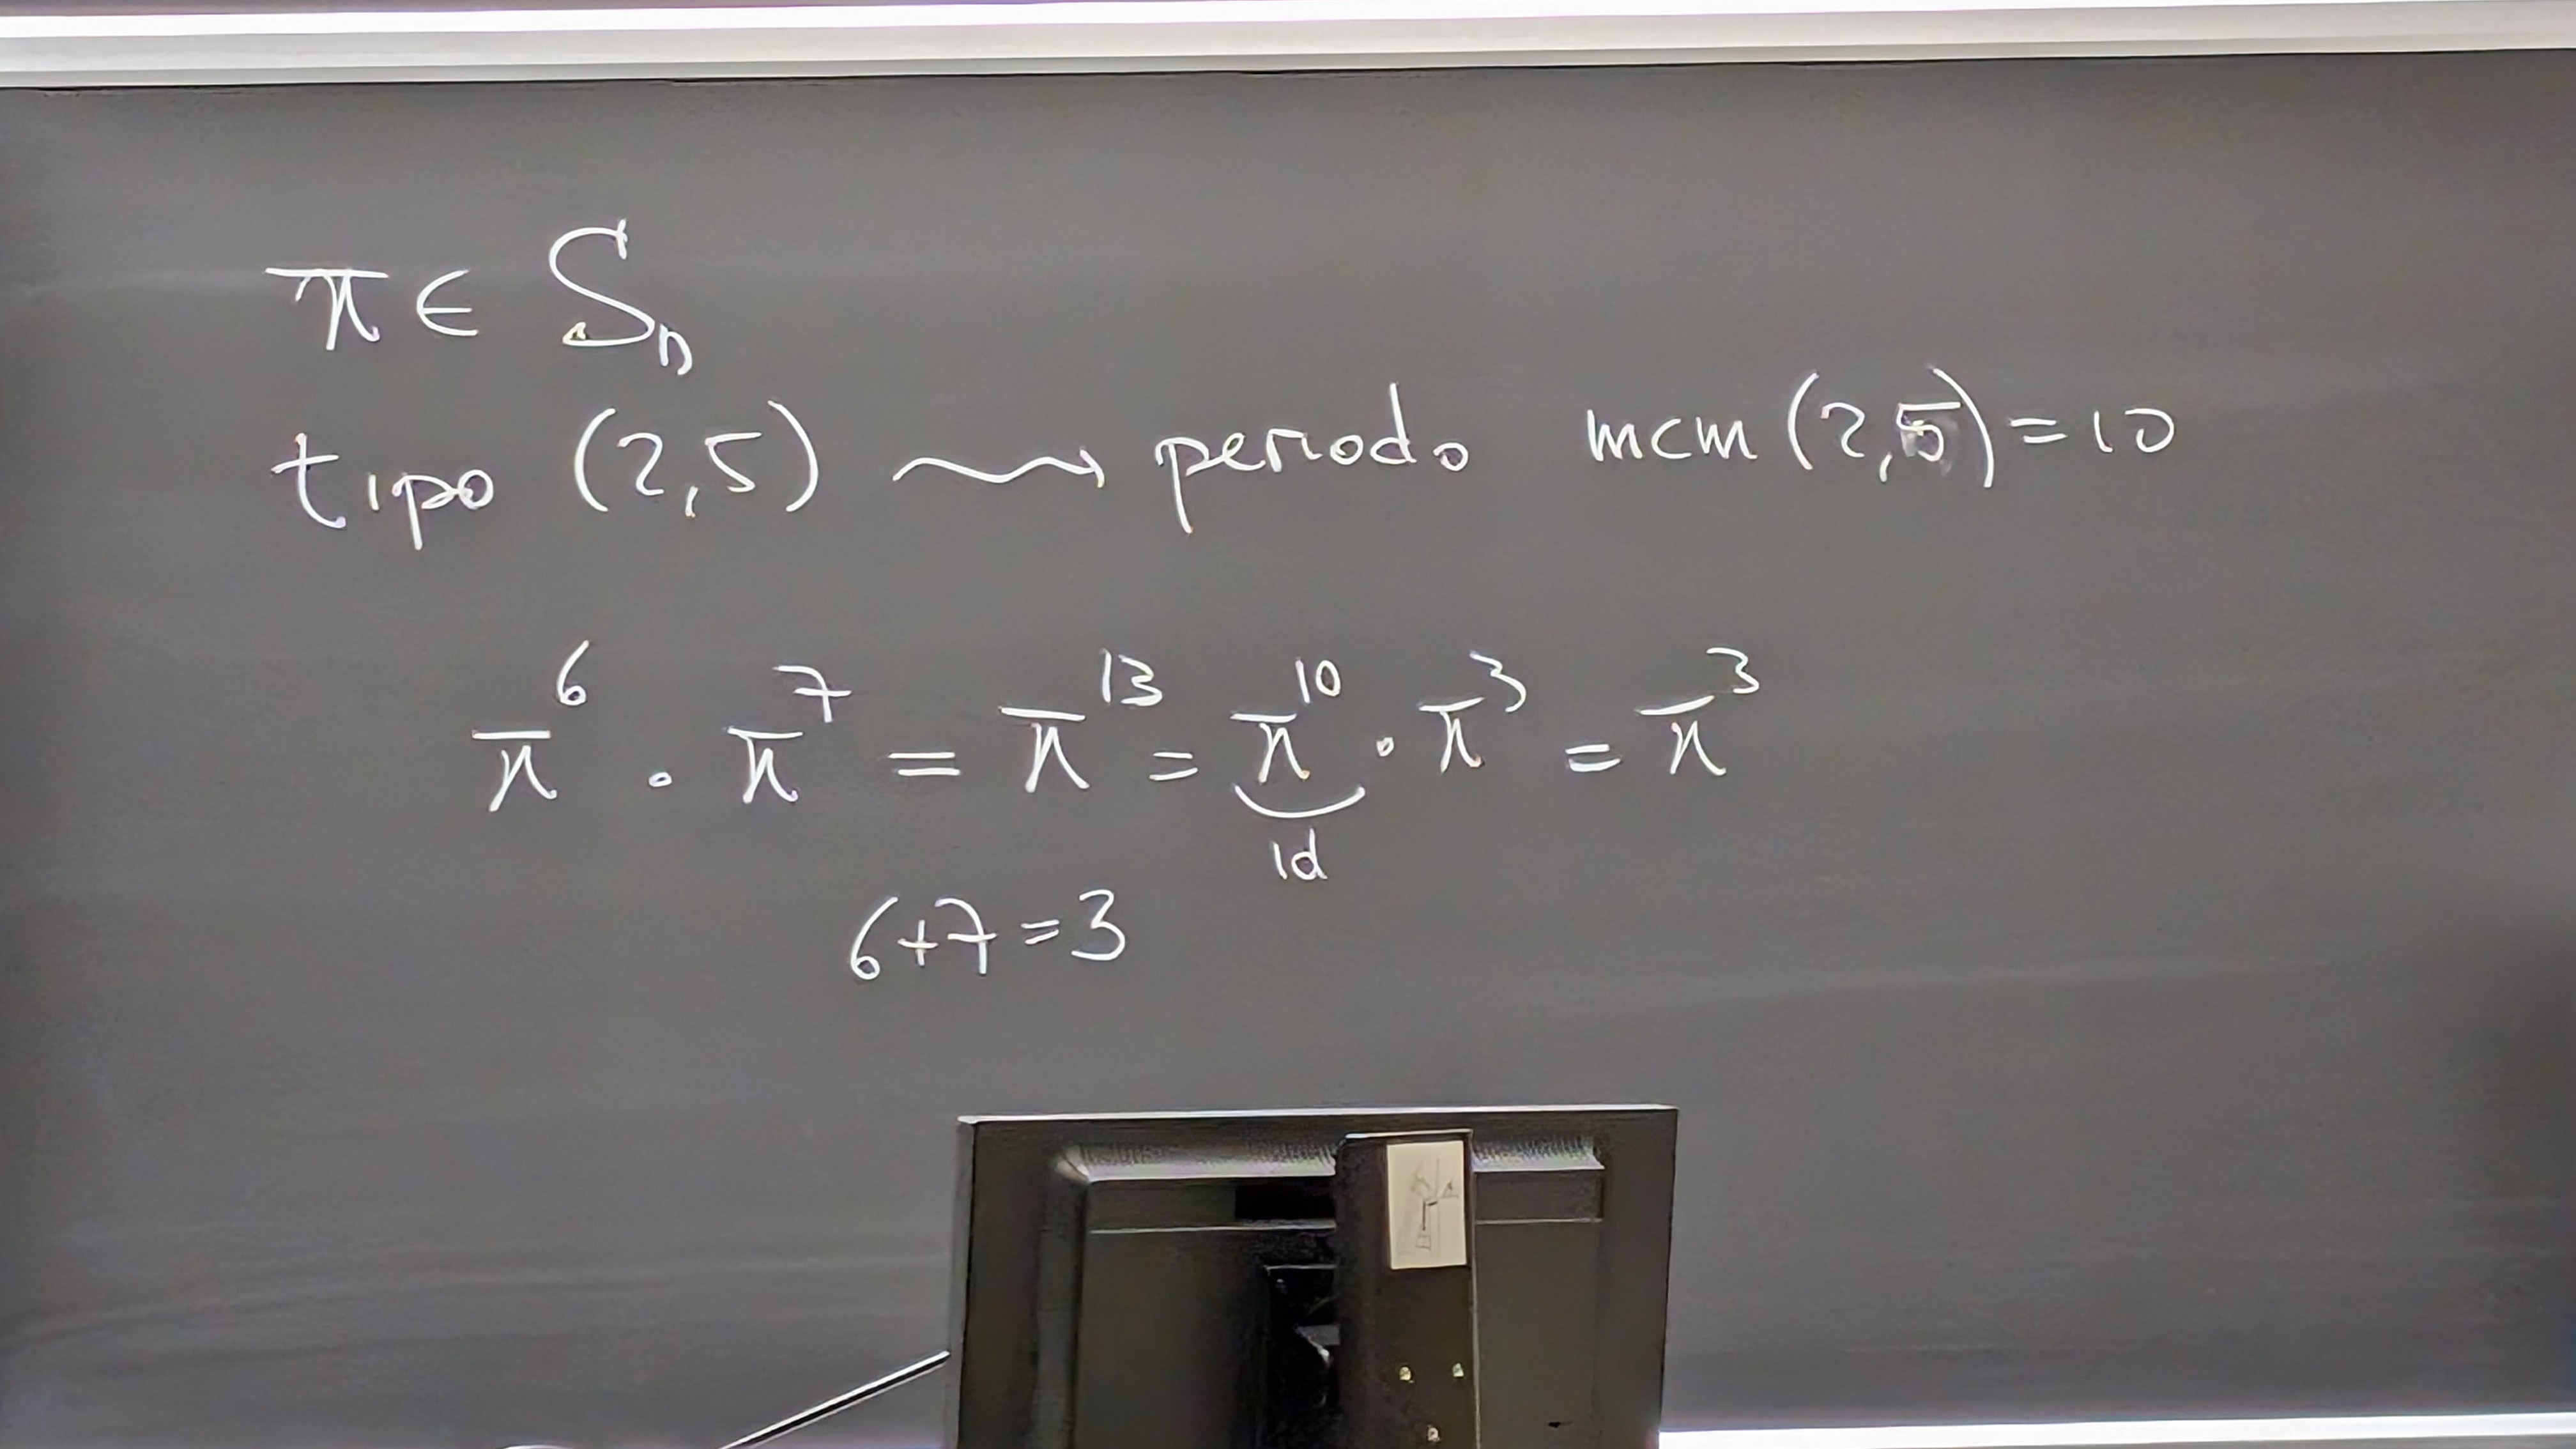 π ∈ Sn
tipo (2,5) ⇝ periodo mcm (2,5) = 10
π⁶ · π⁷ = π¹³ = π¹⁰ · π³ = π³
id
6+7=3